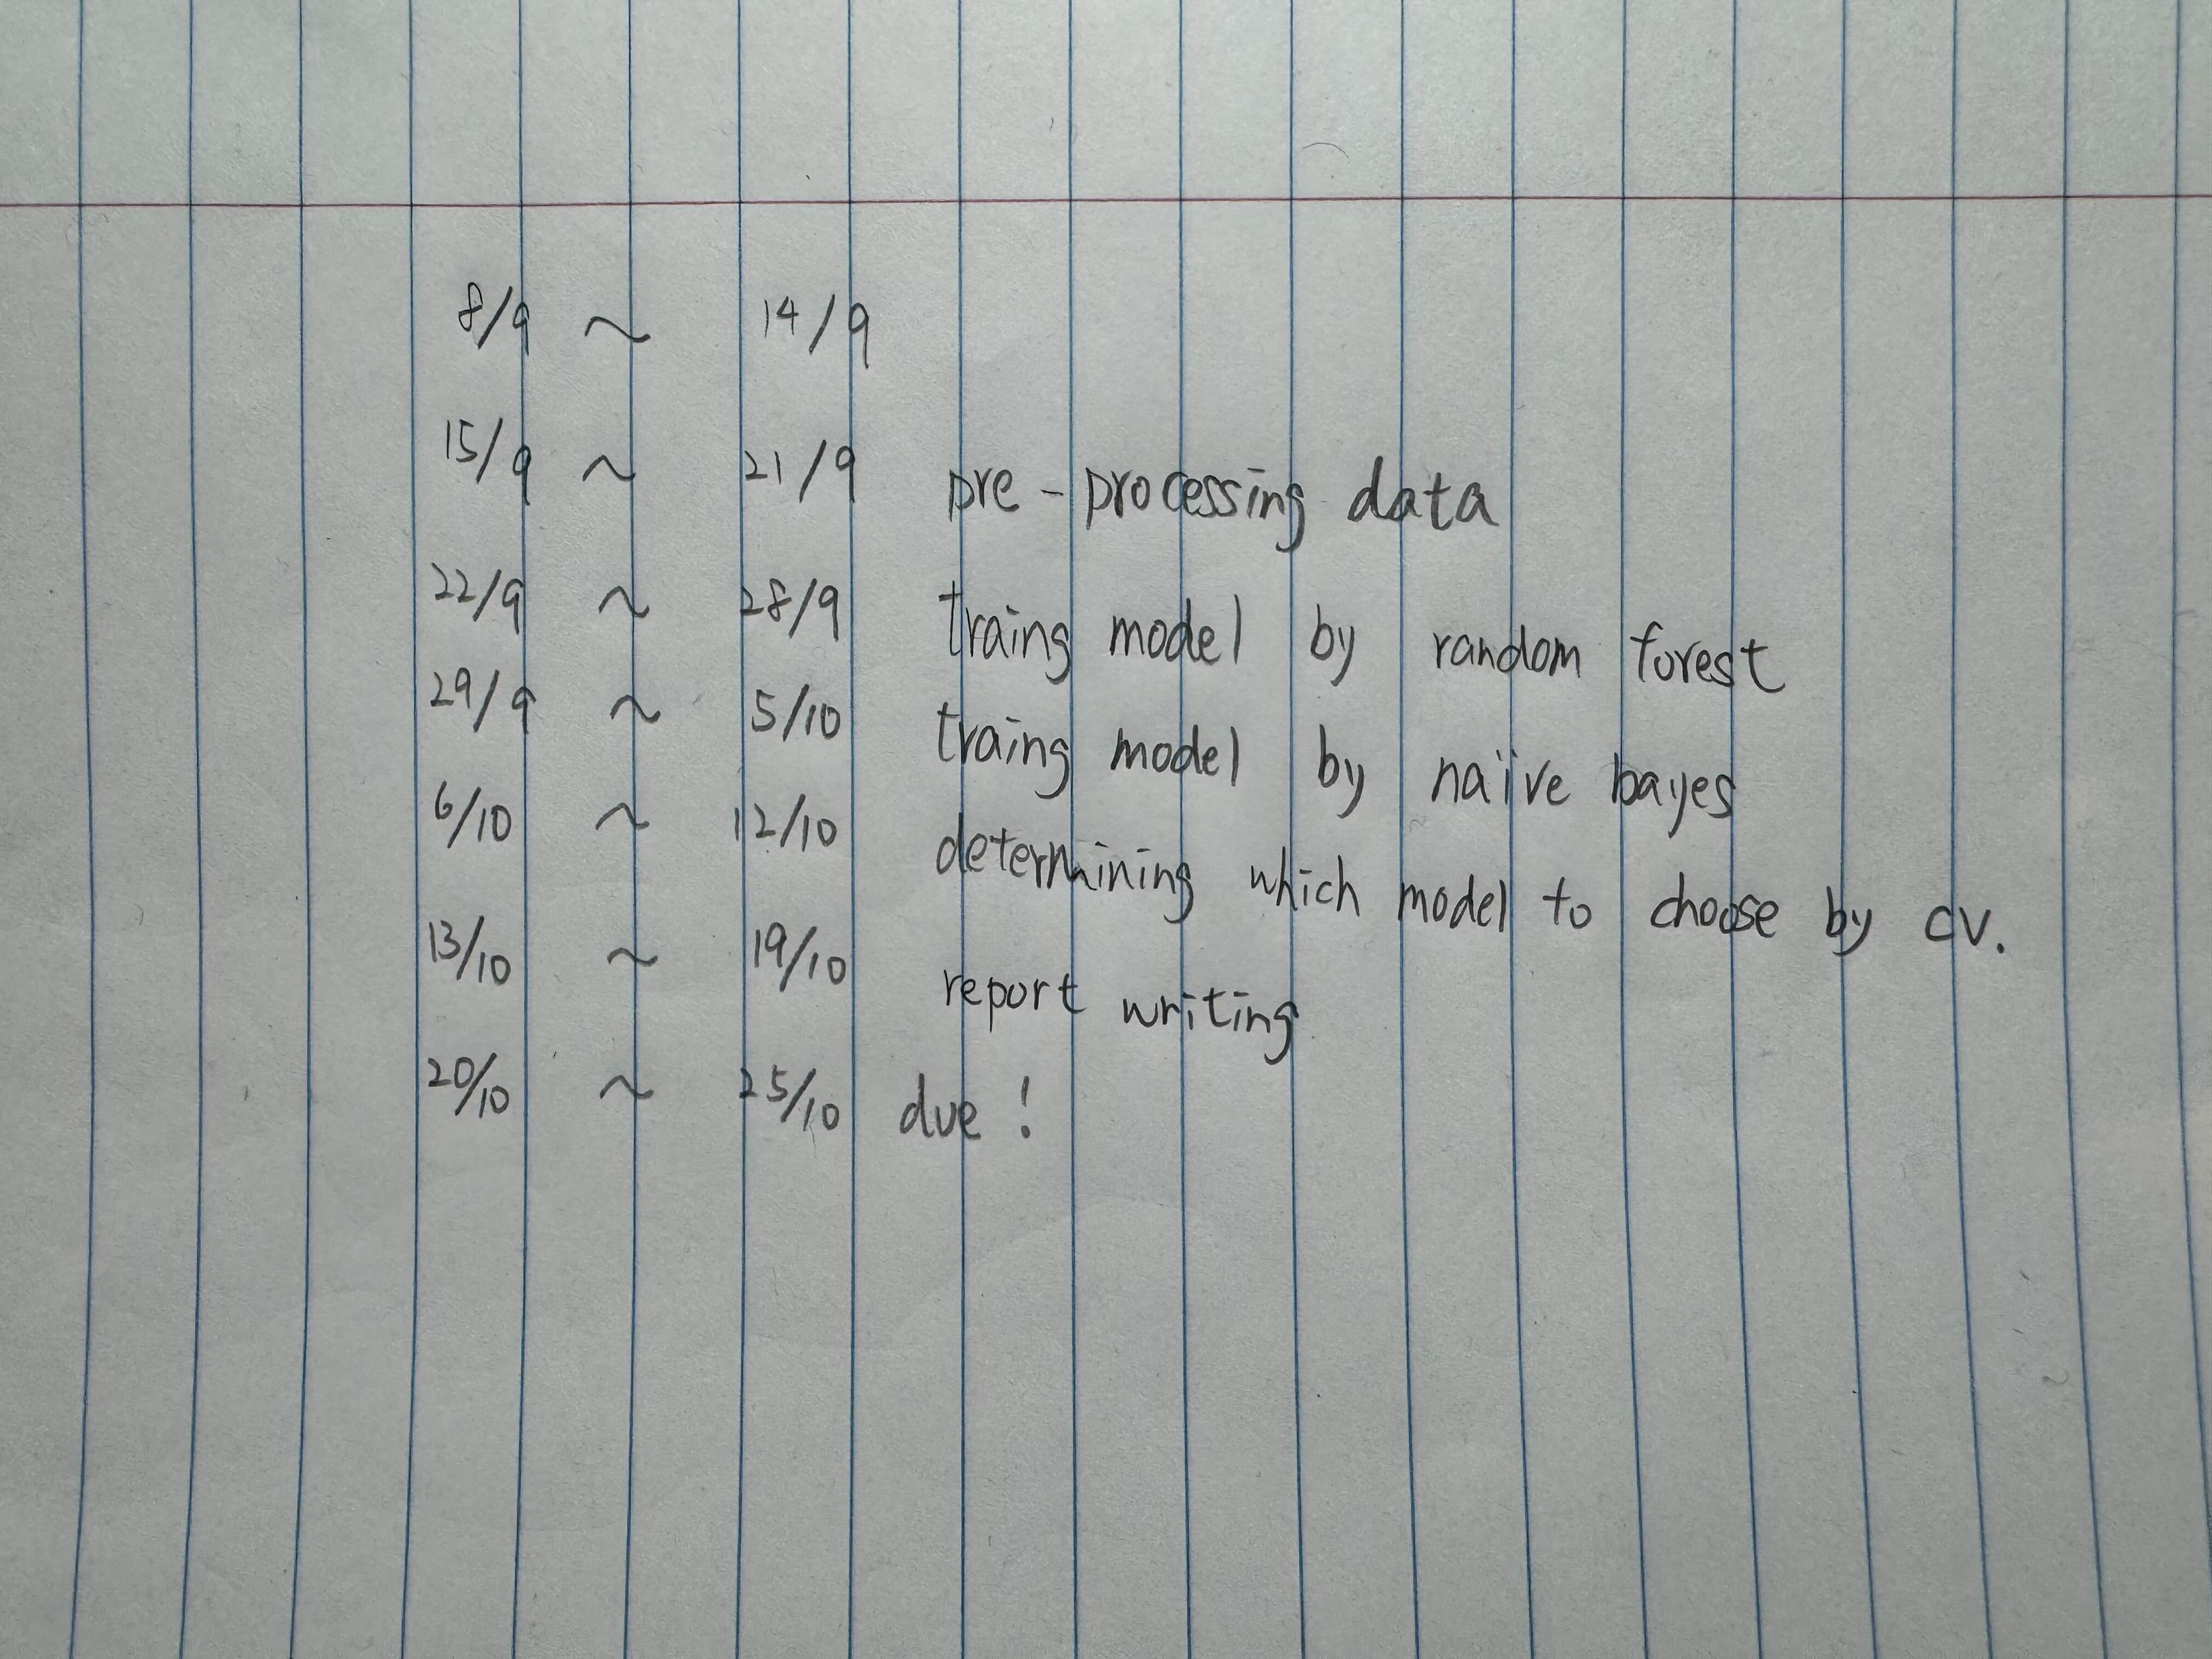 8/9 ~ 14/9
15/9 ~ 21/9 pre-processing data
22/9 ~ 28/9 traing model by random forest
29/9 ~ 5/10 traing model by naïve bayes
6/10 ~ 12/10 determining which model to choose by cv.
13/10 ~ 19/10 report writing
20/10 ~ 25/10 due !